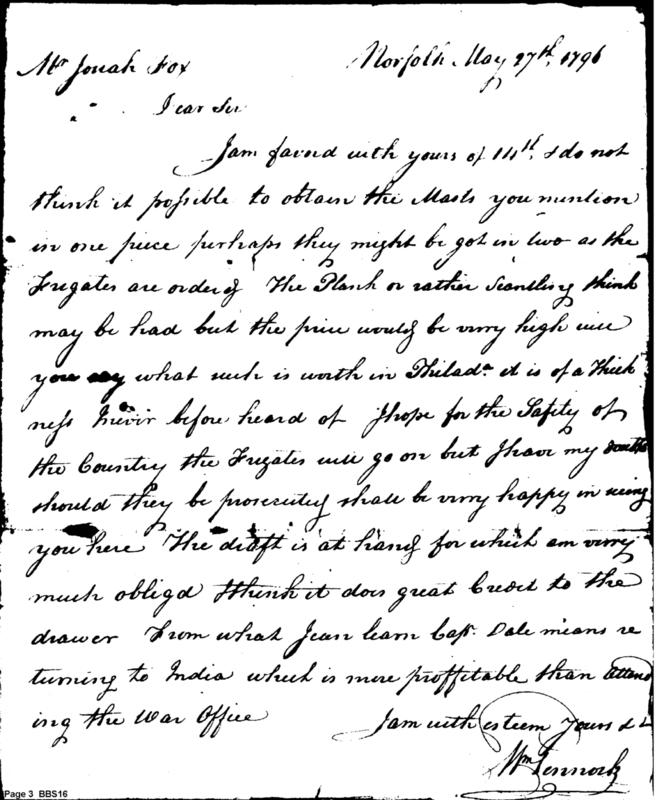 Mr Josiah Fox
Norfolk May 27th, 1796
Dear Sir
I am favord with yours of 14th, & do not
think it possible to obtain the Masts you mention
in one piece perhaps they might be got in two as the
Frigates are orderd The Plank or rather Scantling think
may be had but the price would be verry high will
you say what such is worth in Philada. it is of a Thick
ness I never before heard of I hope for the Safety of
the Country the Frigates will go on but I have my doubts
should they be prosecuted shall be verry happy in seeing
you here The draft is at hand for which am verry
much obligd I think it does great Credit to the
drawer From what I can learn Capt. Dale means re
turning to India which is more proffitable than attend
ing the War Office
I am with esteem Yours &c
Wm Pennock
Page 3 BBS16